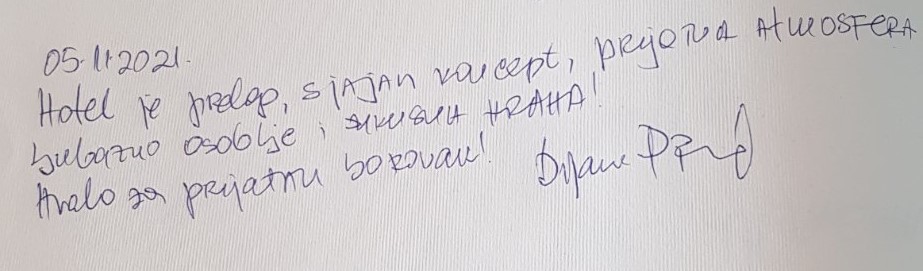 05.11.2021.
Hotel je prelep, sjajan koncept, prijatna ATMOSFERA
ljubazno osoblje i ukusna HRANA!
Hvala za prijatnu boravak! Dijana